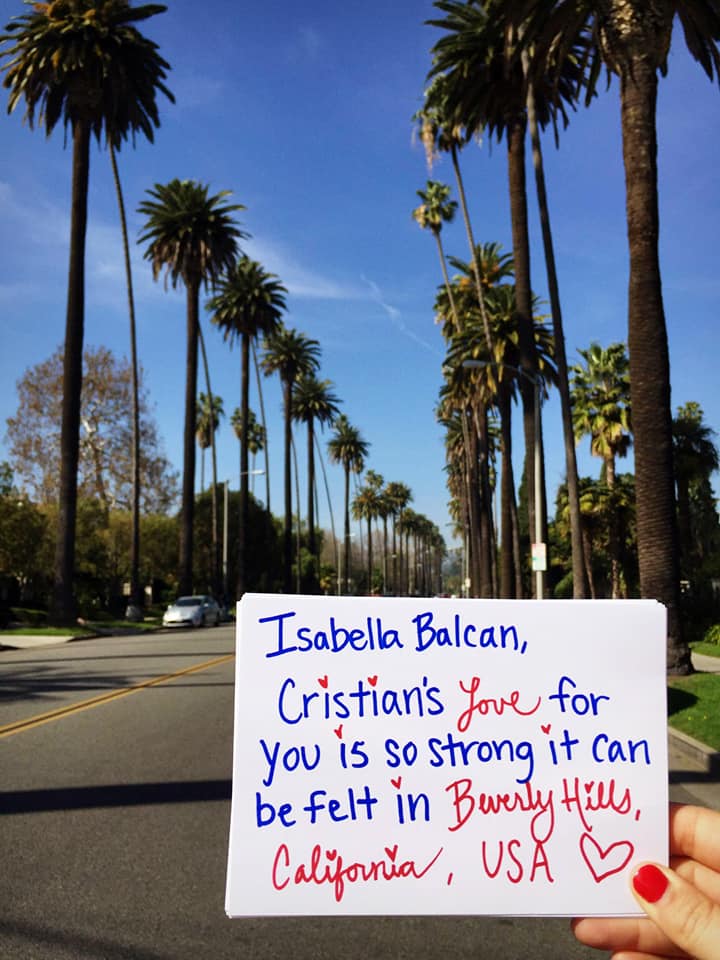 Isabella Balcan,
Cristian's love for
you is so strong it can
be felt in Beverly Hills,
California, USA